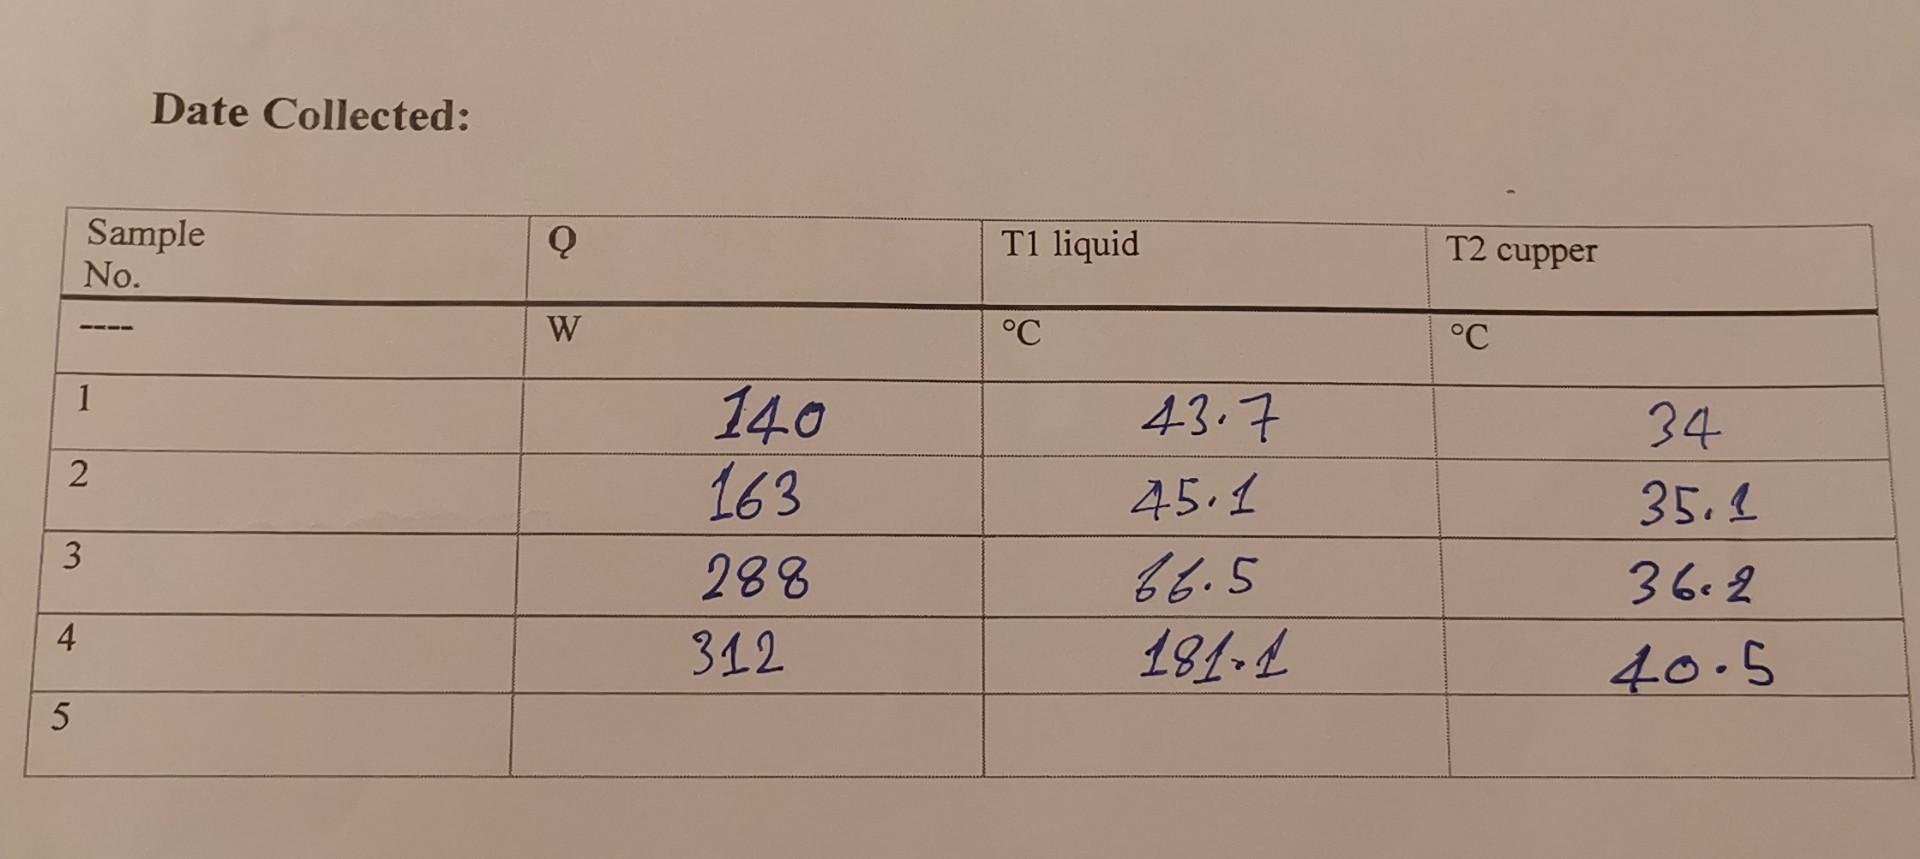 Date Collected:
Sample No. Q T1 liquid T2 cupper
---- W °C °C
1 140 43.7 34
2 163 45.1 35.1
3 288 66.5 36.2
4 312 181.1 40.5
5